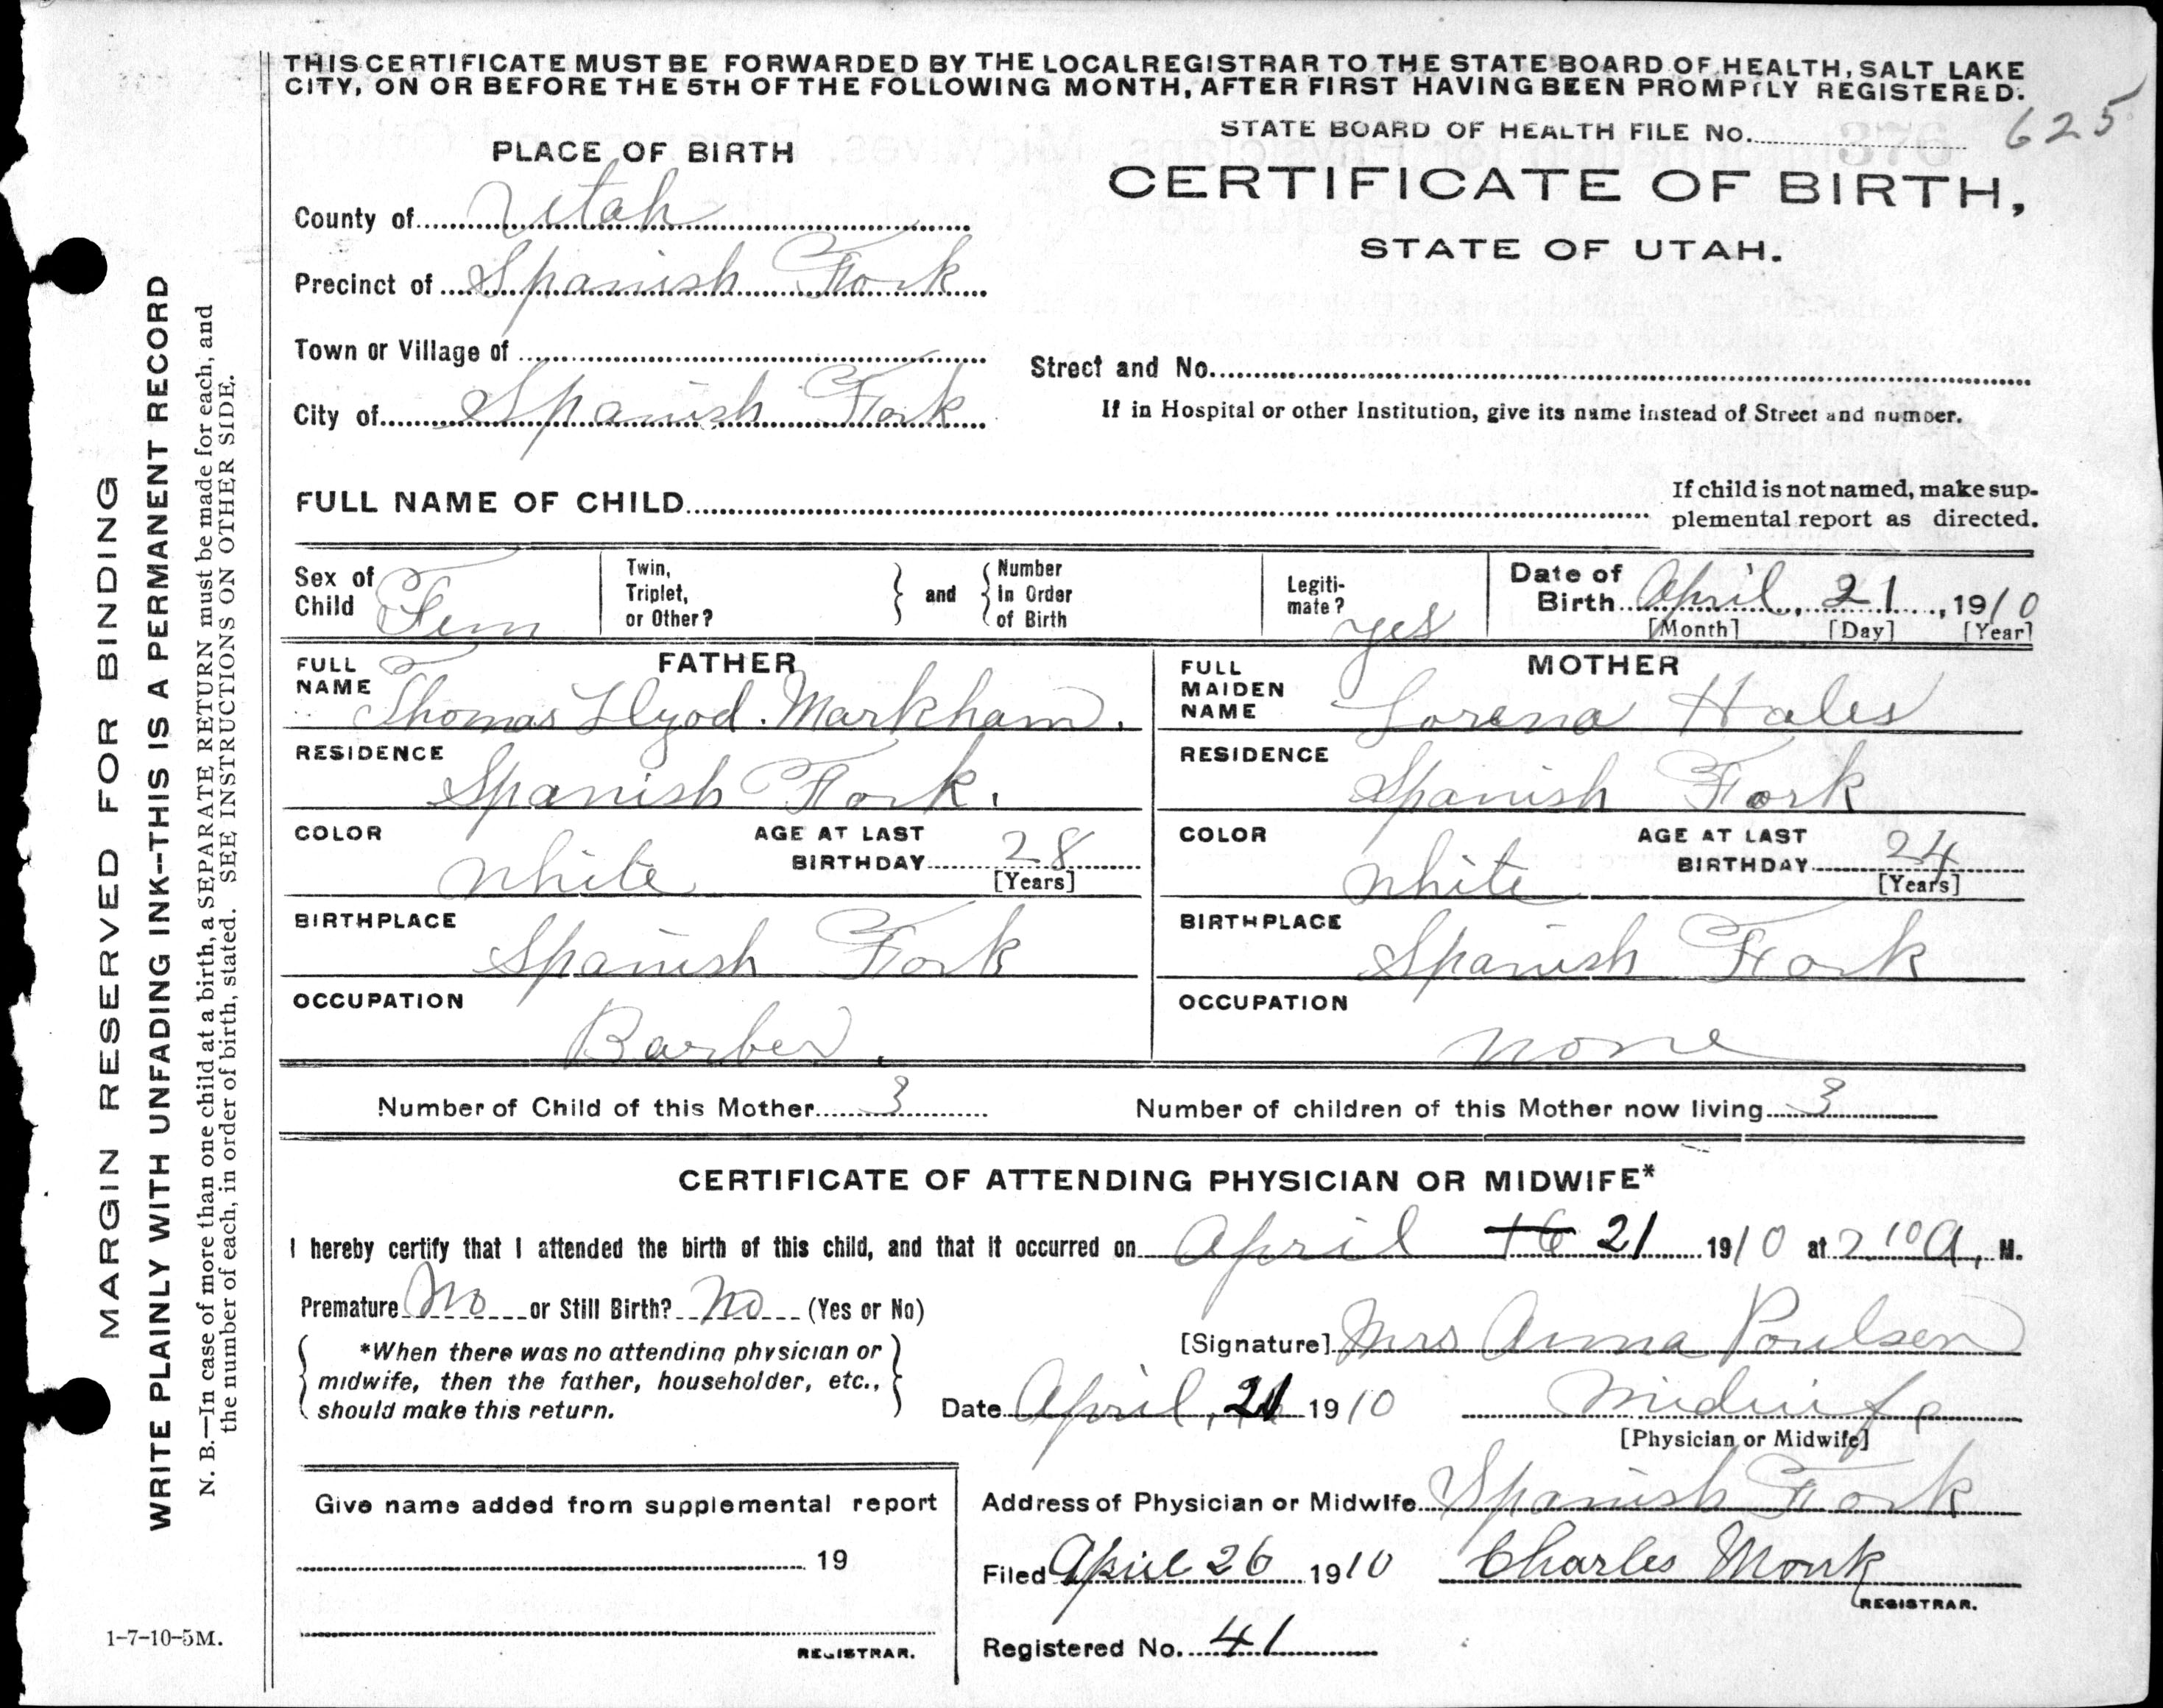 THIS CERTIFICATE MUST BE FORWARDED BY THE LOCAL REGISTRAR TO THE STATE BOARD OF HEALTH, SALT LAKE
CITY, ON OR BEFORE THE 5TH OF THE FOLLOWING MONTH, AFTER FIRST HAVING BEEN PROMPTLY REGISTERED.
STATE BOARD OF HEALTH FILE No. 625
PLACE OF BIRTH
CERTIFICATE OF BIRTH,
STATE OF UTAH.
County of Utah
Precinct of Spanish Fork
Town or Village of
Street and No.
City of Spanish Fork
If in Hospital or other Institution, give its name instead of Street and number.
FULL NAME OF CHILD
If child is not named, make sup-
plemental report as directed.
Sex of Child Fem
Twin, Triplet, or Other?
and
Number In Order of Birth
Legiti-mate? yes
Date of Birth April, 21, 1910
[Month] [Day] [Year]
FATHER
FULL NAME Thomas Llyod. Markham.
RESIDENCE Spanish Fork.
COLOR White AGE AT LAST BIRTHDAY 28 [Years]
BIRTHPLACE Spanish Fork
OCCUPATION Barber.
MOTHER
FULL MAIDEN NAME Lorena Hales
RESIDENCE Spanish Fork
COLOR White AGE AT LAST BIRTHDAY 24 [Years]
BIRTHPLACE Spanish Fork
OCCUPATION none
Number of Child of this Mother 3 Number of children of this Mother now living 3
CERTIFICATE OF ATTENDING PHYSICIAN OR MIDWIFE*
I hereby certify that I attended the birth of this child, and that it occurred on April 16 21 1910 at 2 10 A, M.
Premature No or Still Birth? No (Yes or No)
*When there was no attending physician or
midwife, then the father, householder, etc.,
should make this return.
[Signature] Mrs Anna Poulsen
Date April, 21 1910 Midwife
[Physician or Midwife]
Give name added from supplemental report
19
REGISTRAR.
Address of Physician or Midwife Spanish Fork
Filed April 26 1910 Charles Monk
REGISTRAR.
Registered No. 41
MARGIN RESERVED FOR BINDING
WRITE PLAINLY WITH UNFADING INK--THIS IS A PERMANENT RECORD
N. B.—In case of more than one child at a birth, a SEPARATE RETURN must be made for each, and
the number of each, in order of birth, stated. SEE INSTRUCTIONS ON OTHER SIDE.
1-7-10-5M.